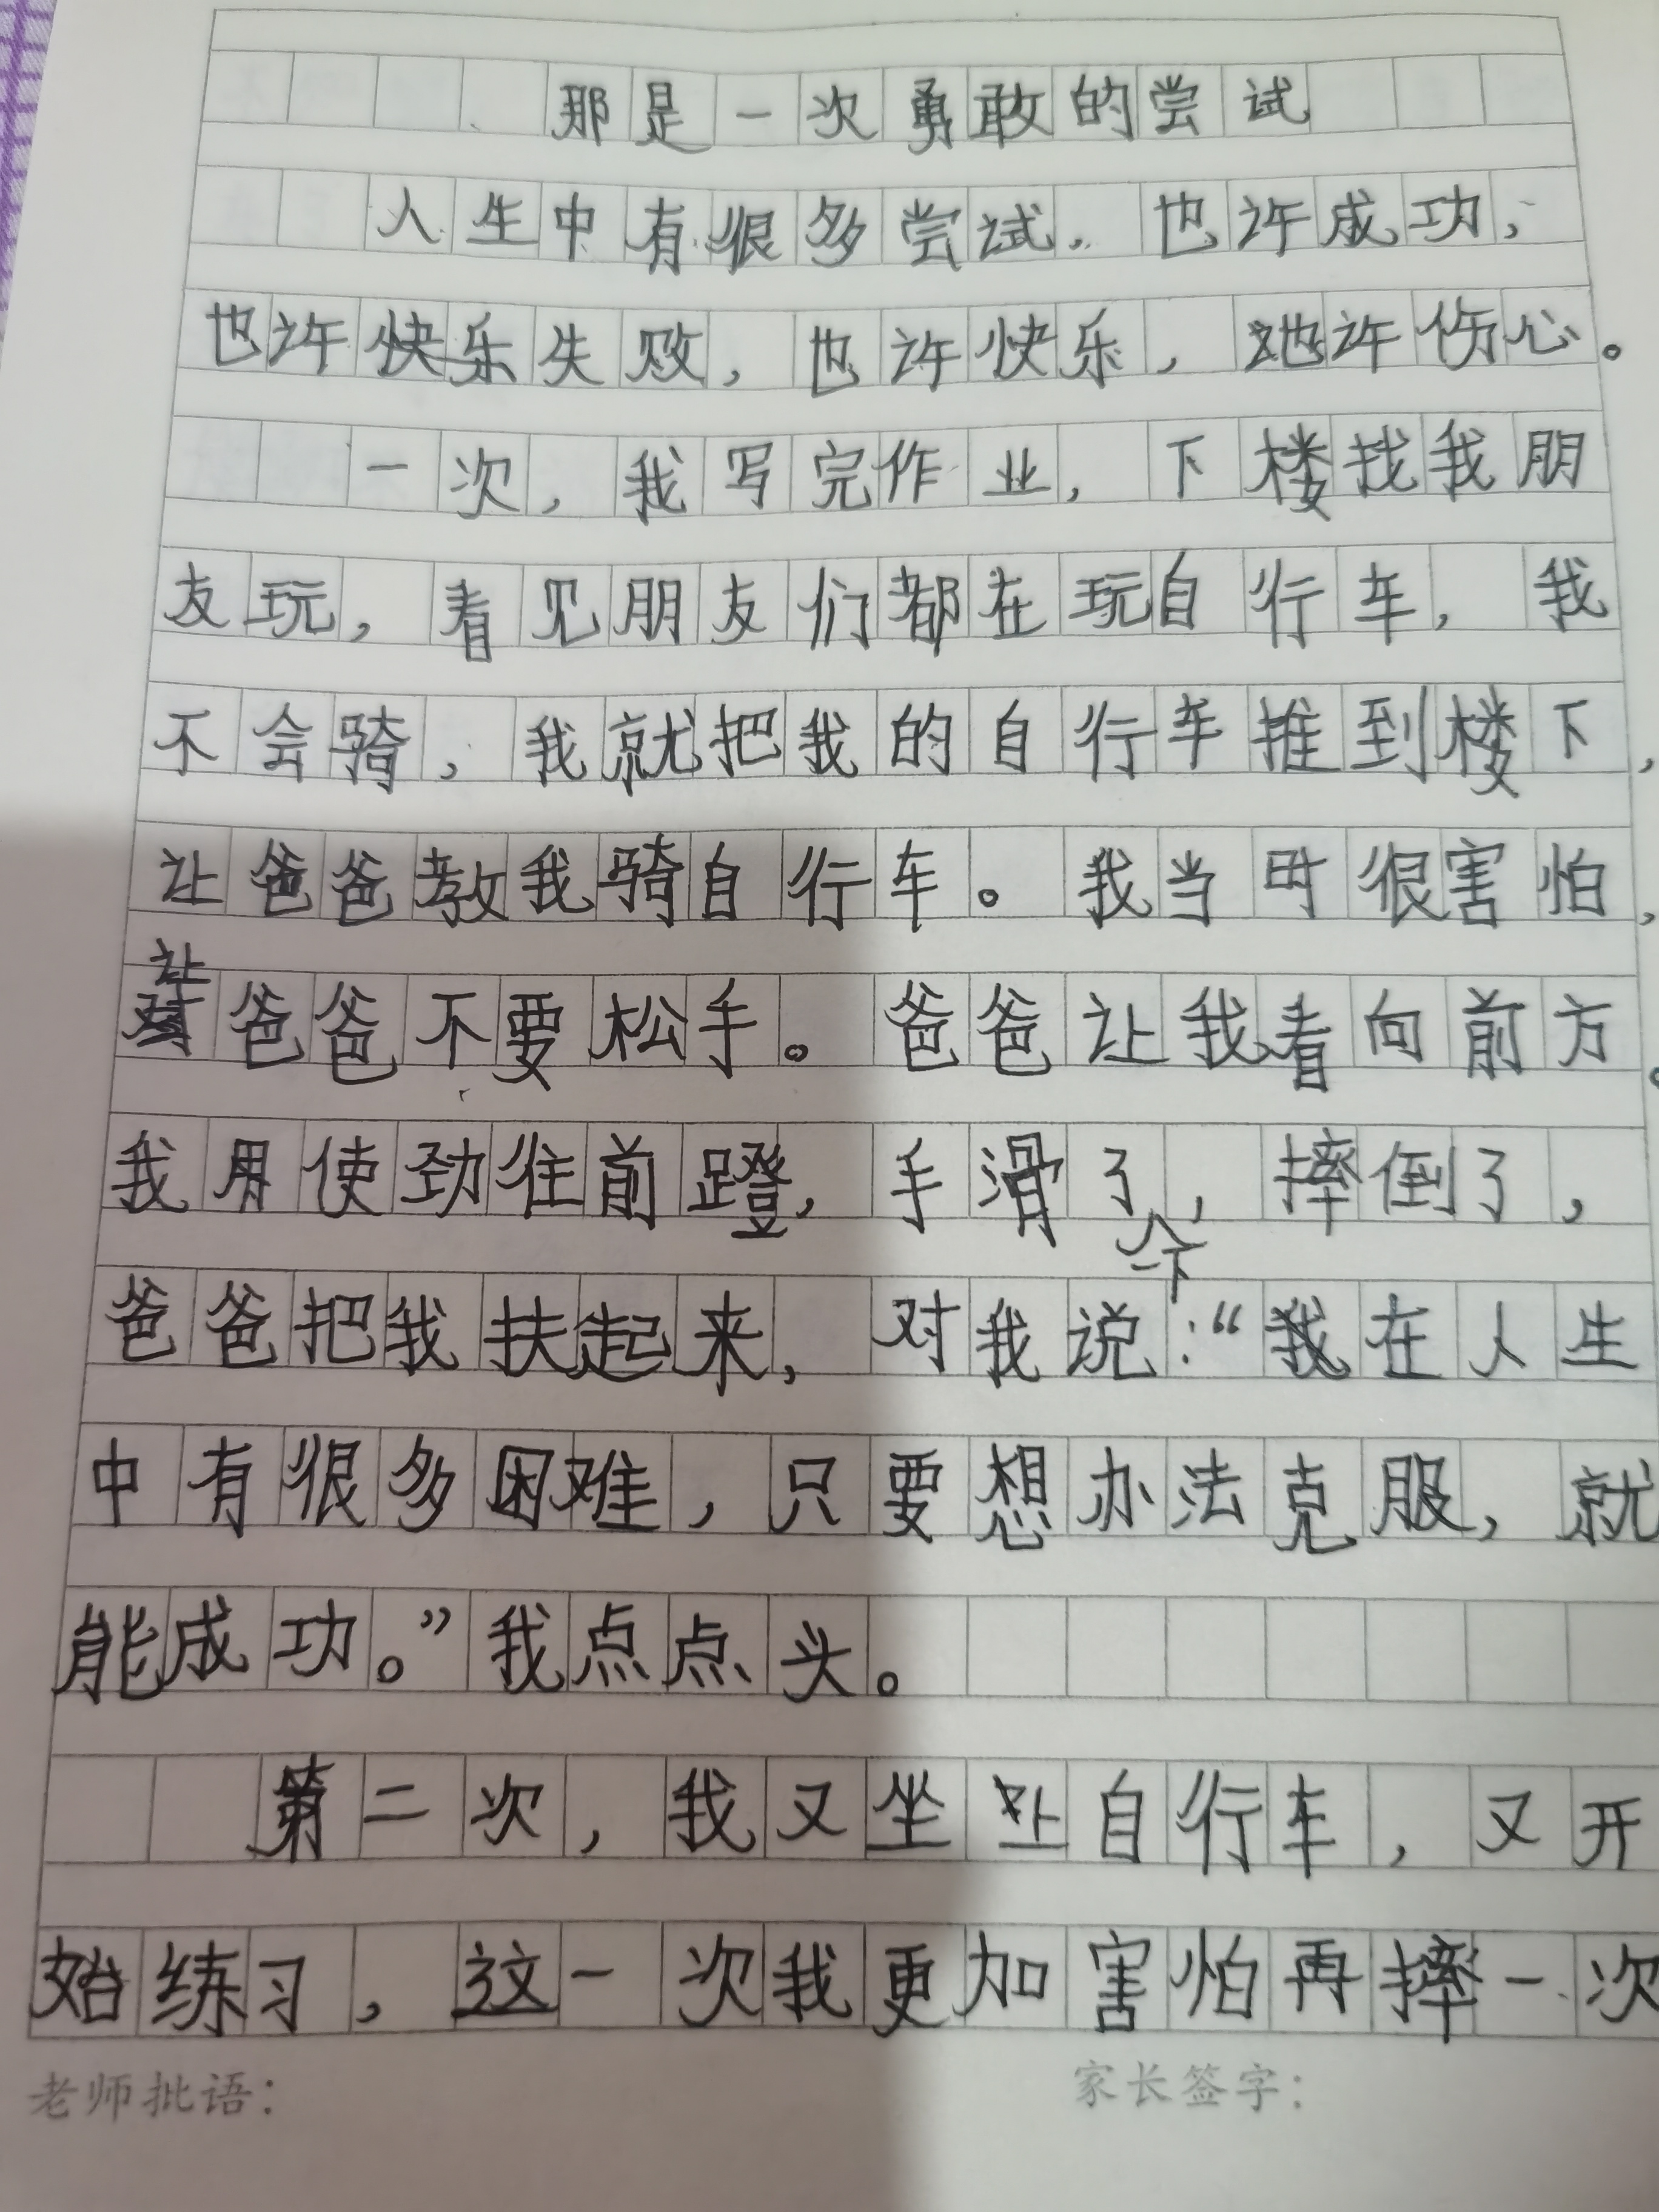 那是一次勇敢的尝试
人生中有很多尝试，也许成功，
也许快乐失败，也许快乐，也许伤心。
一次，我写完作业，下楼找我朋
友玩，看见朋友们都在玩自行车，我
不会骑，我就把我的自行车推到楼下，
让爸爸教我骑自行车。我当时很害怕，
让爸爸不要松手。爸爸让我看向前方。
我用使劲往前蹬，手滑了，摔倒了，
爸爸把我扶起来，对我说：“我在人生
中有很多困难，只要想办法克服，就
能成功。”我点点头。
第二次，我又坐上自行车，又开
始练习，这一次我更加害怕再摔一次
老师批语：
家长签字：